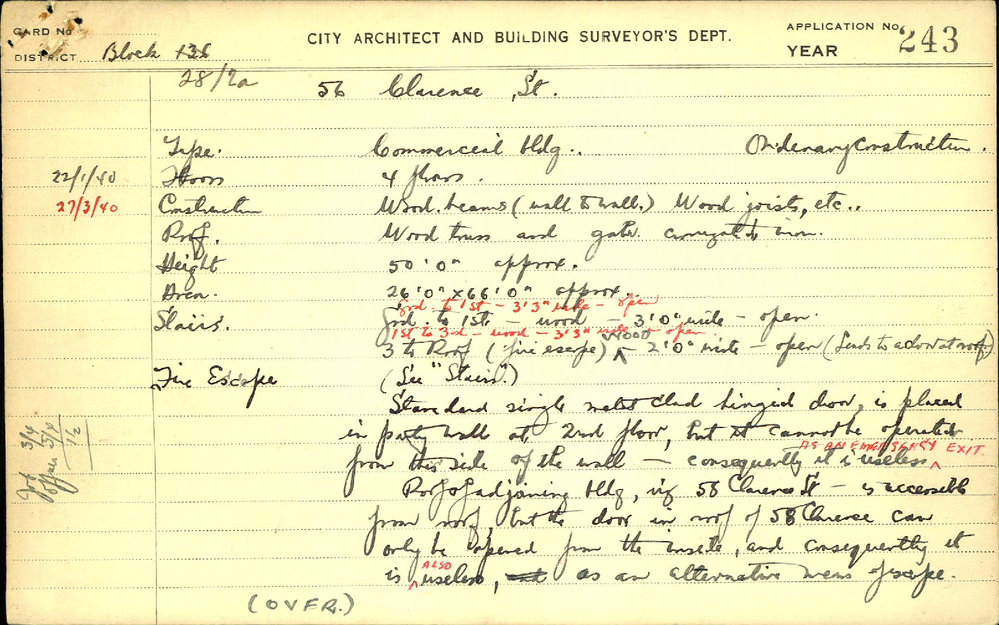 CARD No
CITY ARCHITECT AND BUILDING SURVEYOR'S DEPT.
APPLICATION No. 243
DISTRICT Block 138
YEAR
28/2a 56 Clarence St.
Type. Commercial bldg.. Ordinary Construction.
22/1/40 Floors 4 floors.
27/3/40 Construction Wood beams (wall to wall.) Wood joists, etc..
Roof. Wood truss and galv. corrugated iron.
Height 50'0" approx.
Area. 26'0" x 66'0" approx.
Grd. to 1st - 3'3" wide - open
Stairs. Grd. to 1st - wood - 3'0" wide - open.
1st to 3rd - wood - 3'3" wide - open
3 to Roof (fire escape) WOOD - 2'0" wide - open (Leads to a door at roof)
Fire Escape (See "Stairs".)
Standard single metal clad hinged door, is placed
in party wall at 2nd floor, but it cannot be operated
from this side of the wall - consequently it is useless AS AN EMERGENCY EXIT.
Roof of adjoining bldg, viz 58 Clarence St - is accessible
from roof, but the door in roof of 58 Clarence can
only be opened from the inside, and consequently it
is ALSO useless, as an alternative means of escape.
Job 3/4
Offices 5/4
1/2
(OVER.)